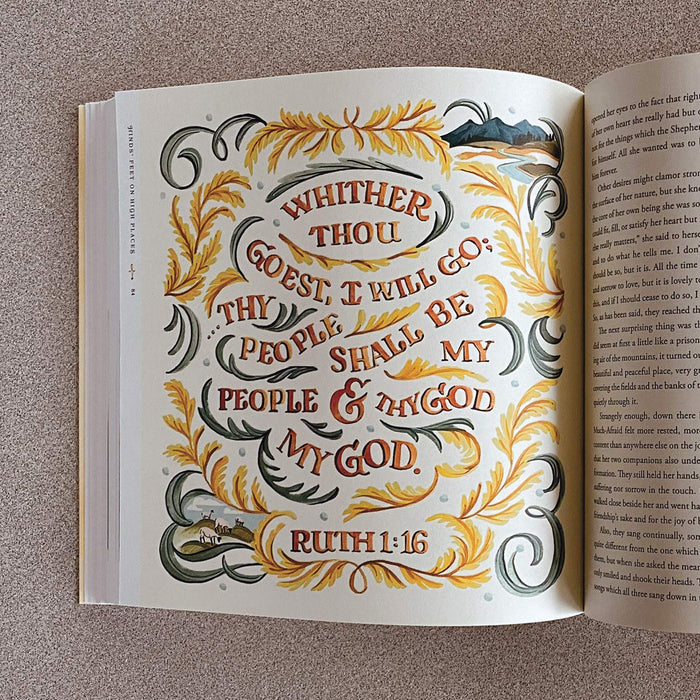 HINDS' FEET ON HIGH PLACES
84
WHITHER
THOU
GOEST, I WILL GO;
...THY
PEOPLE SHALL BE
MY
PEOPLE & THY GOD
MY GOD.
RUTH 1:16
opened her eyes to the fact that right
of her own heart she really had but
for the things which the Shepher
himself. All she wanted was to
him forever.
Other desires might clamor stron
the surface of her nature, but she kne
the core of her own being she was so
could fit, fill, or satisfy her heart but
she really matters," she said to herse
and to do what he tells me. I don't
should be so, but it is. All the time
and sorrow to love, but it is lovely t
this, and if I should cease to do so, I
So, as has been said, they reached th
The next surprising thing was th
did seem at first a little like a prison
ing air of the mountains, it turned o
beautiful and peaceful place, very gr
covering the fields and the banks of
quietly through it.
Strangely enough, down there
Much-Afraid felt more rested, more
content than anywhere else on the jo
that her two companions also under
formation. They still held her hands,
suffering nor sorrow in the touch.
walked close beside her and went ha
friendship's sake and for the joy of
Also, they sang continually, som
quite different from the one which
them, but when she asked the meani
only smiled and shook their heads. T
songs which all three sang down in